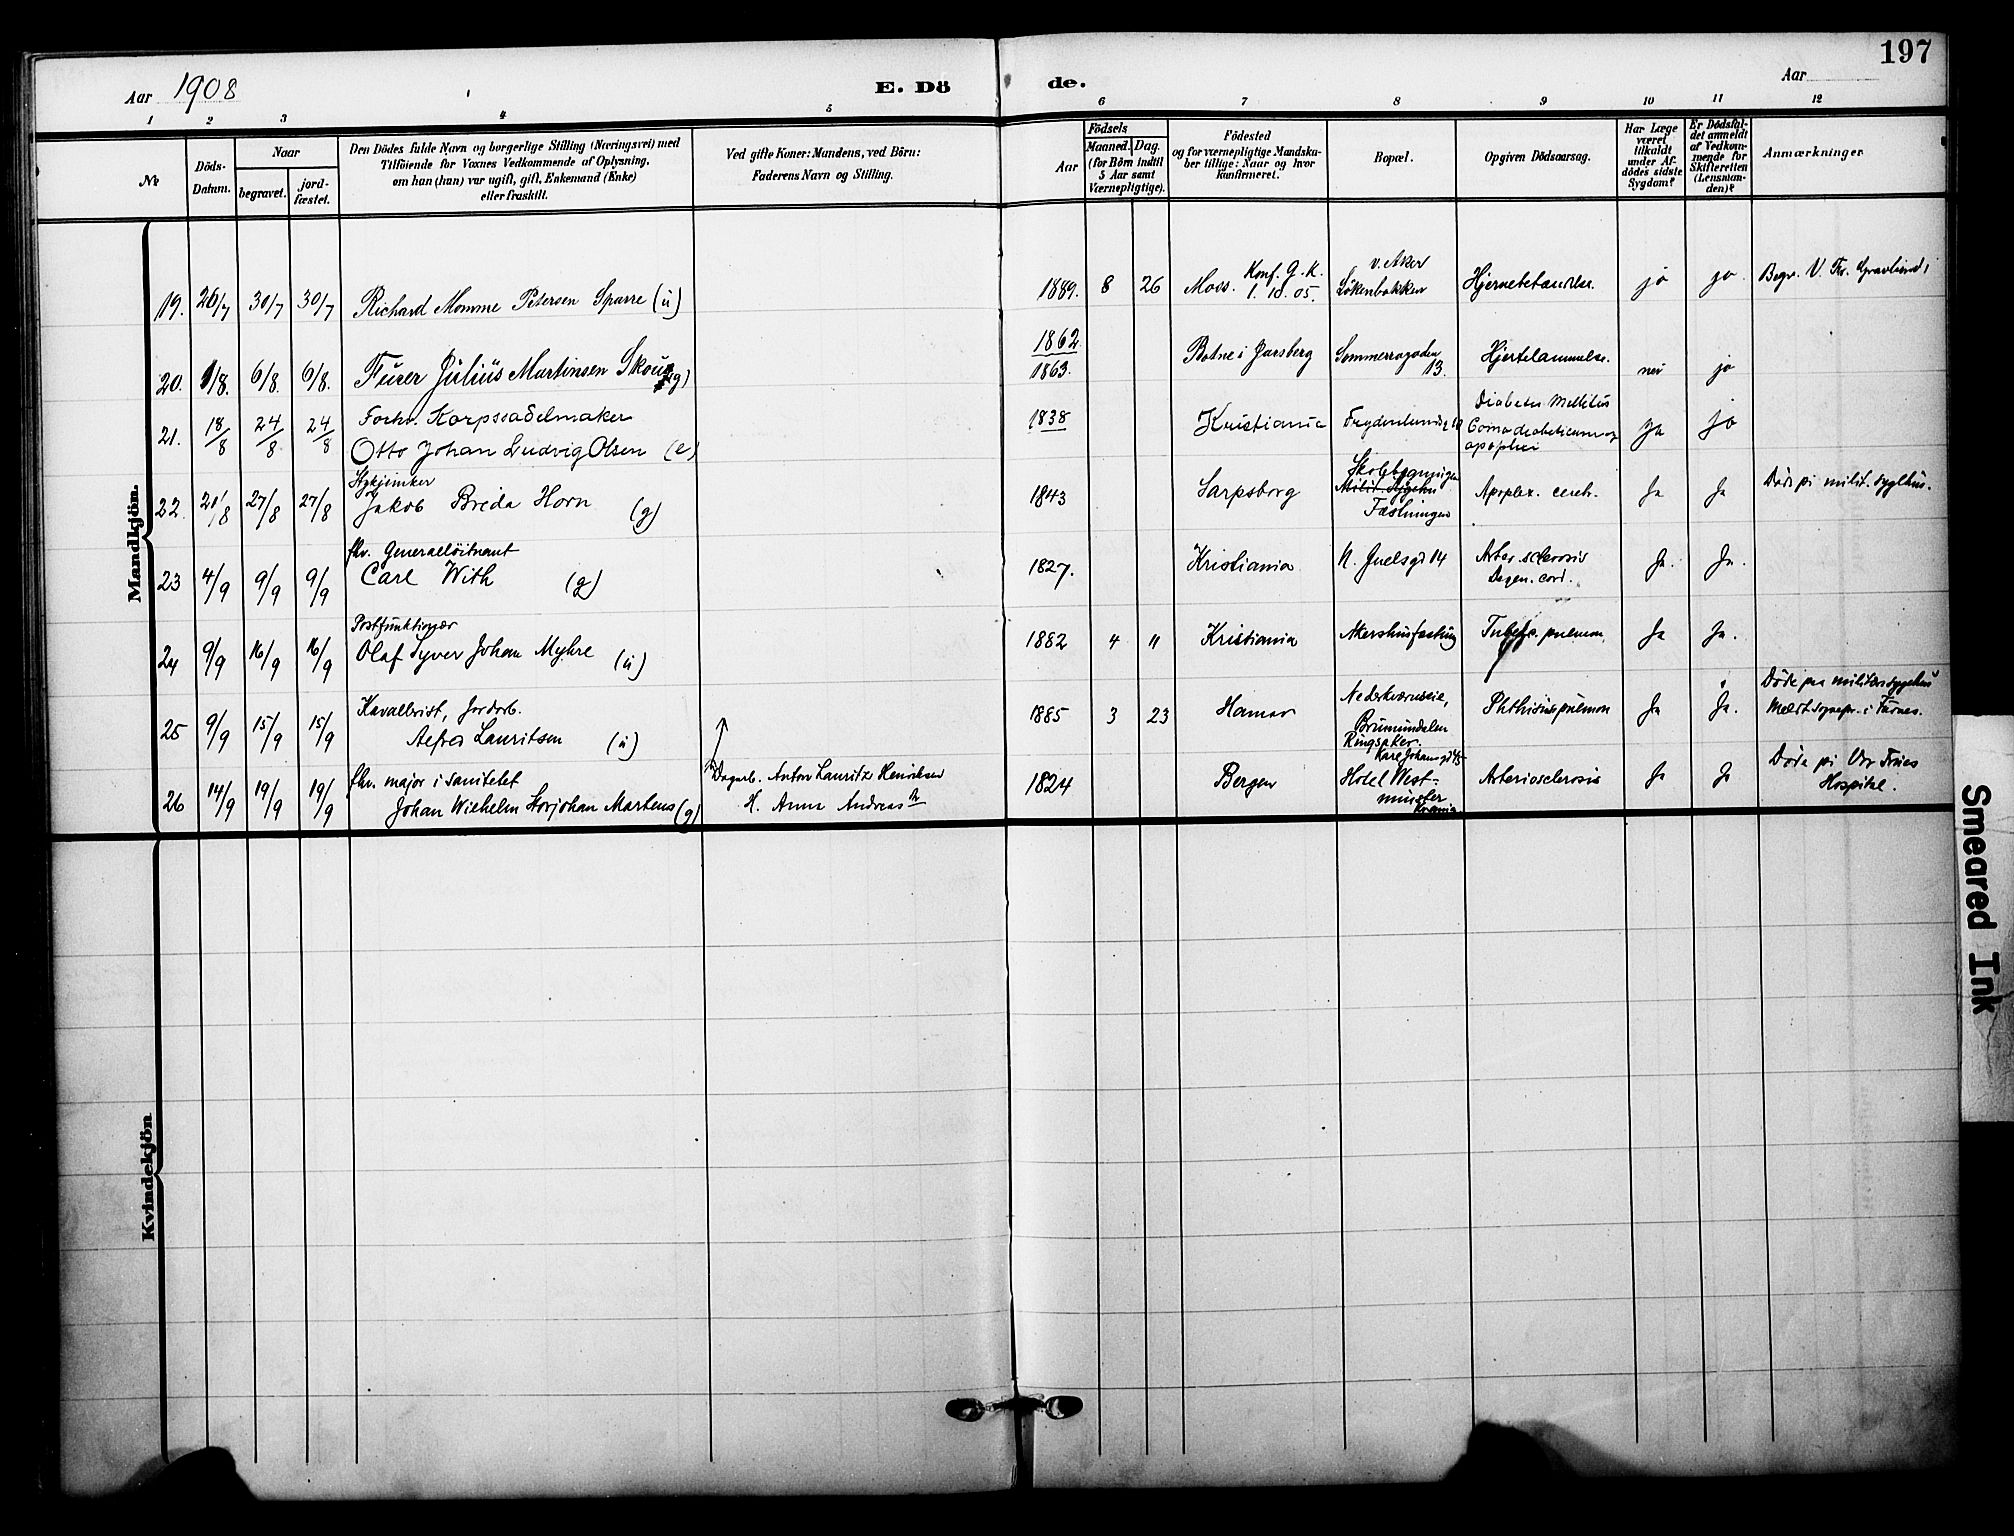 197
Aar 1908
E. Dö de.
Aar
1 2 3 4 5 6 7 8 9 10 11 12
№
Döds-
Datum.
Naar
begravet.
jord-
fæstet.
Den Dödes fulde Navn og borgerlige Stilling (Næringsvei) med
Tilföiende for Voxnes Vedkommende af Oplysning,
om han (hun) var ugift, gift, Enkemand (Enke)
eller fraskilt.
Ved gifte Koner: Mandens, ved Börn:
Faderens Navn og Stilling.
Födsels
Aar
Maaned. Dag.
(for Börn indtil
5 Aar samt
Værnepligtige).
Födested
og for værnepligtige Mandska-
ber tillige: Naar og hvor
konfirmeret.
Bopæl.
Opgiven Dödsaarsag.
Har Læge
været
tilkaldt
under Af-
dödes sidste
Sygdom?
Er Dödsfal-
det anmeldt
af Vedkom-
mende for
Skifteretten
(Lensman-
den)?
Anmærkninger.
Mandkjön.
19. 26/7 30/7 30/7 Richard Momme Petersen Sparre (u) 1889. 8 26 Moss. Konf. G. K. 1. 10. 05. v. Aker Løkenbakken Hjernebetændelse. ja ja. Begr. V. Fr. Gravlund,
20. 1/8. 6/8. 6/8. Furer Julius Martinsen Skoug (g) 1862 1863. Botne i Jarlsberg Sommerrogaden 13. Hjertelammelse. nei ja
21. 18/8 24/8 24/8 Forhv. Korpssadelmaker
Otto Johan Ludvig Olsen (e) 1838 Kristiania Diabetes Mellitus
Coma diabeticum og
apoplexi ja ja
22. 21/8 27/8 27/8 Stykjunker
Jakob Breda Horn (g) 1843 Sarpsborg Skolebygningen
Milit. Sygehu
Fæstningen Apoplex. cereb. Ja Ja Døde på milit. sygehus.
23 4/9 9/9 9/9 fhv. Generalløitnant
Carl With (g) 1827. Kristiania N. Juelsgd 14 Arter. sclerosis
Degen. cord. Ja. Ja.
24 9/9 16/9 16/9 Postfunktionær
Olaf Syver Johan Myhre (u) 1882 4 11 Kristiania Akershus fæstning Tuberc. pulmon. Ja Ja.
25 9/9 15/9 15/9 Kavallerist, Jordarb.
Alfred Lauritsen (u) 1885 3 23 Hamar Nederkværnseie,
Brumundalen
Ringsaker. Phthisis pulmon Ja Ja. Døde paa militærsygehus
Meldt sognepr. i Furnes.
26 14/9 19/9 19/9 fhv. major i sanitetet
Johan Wilhelm Storjohan Martens (g) Dagarb. Anton Lauritz Henriksen
H. Anna Andreasdtr 1824 Bergen Karl Johansgd 45
Hotel West-
minster
Krania Arteriosclerosis Ja Ja Døde på Vor Frues
Hospital.
Kvindekjön
Smeared Ink